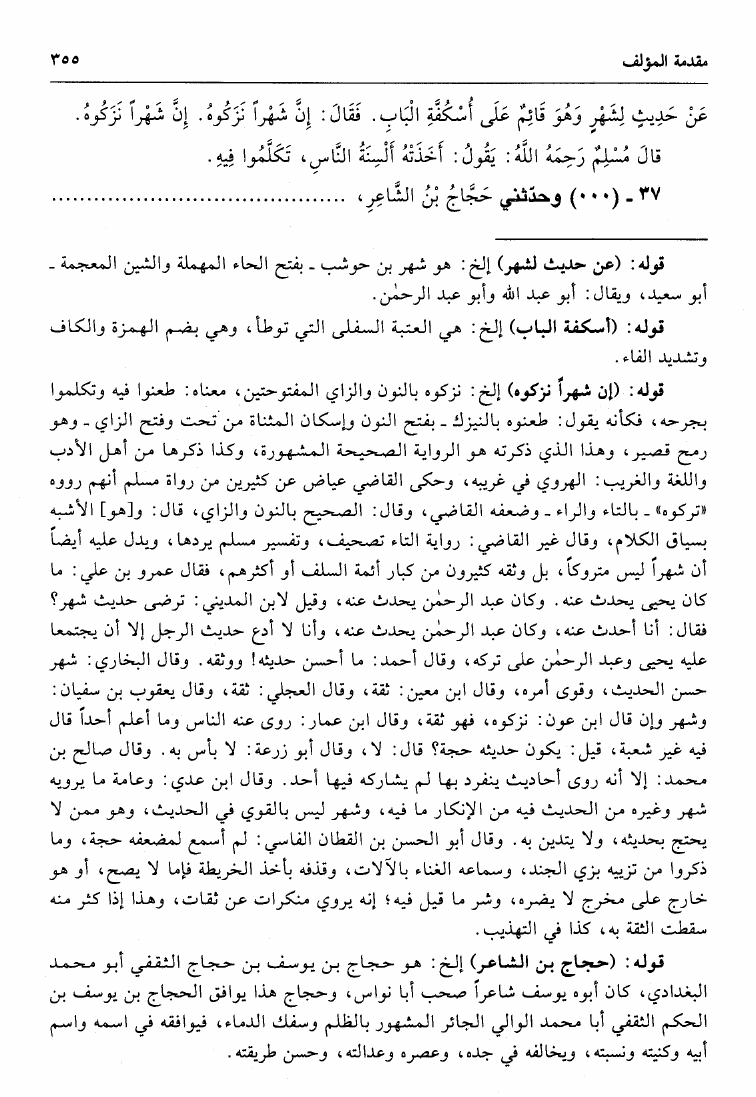 مقدمة المؤلف ٣٥٥
عَنْ حَدِيثٍ لِشَهْرٍ وَهُوَ قَائِمٌ عَلَى أُسْكُفَّةِ الْبَابِ. فَقَالَ: إِنَّ شَهْراً نَزَكُوهُ. إِنَّ شَهْراً نَزَكُوهُ.
قالَ مُسْلِمٌ رَحِمَهُ اللَّهُ: يَقُولُ: أَخَذَتْهُ أَلْسِنَةُ النَّاسِ، تَكَلَّمُوا فِيهِ.
٣٧ ـ (٠٠٠) وحدّثني حَجَّاجُ بْنُ الشَّاعِرِ، ........................................
قوله: (عن حديث لشهر) إلخ: هو شهر بن حوشب ـ بفتح الحاء المهملة والشين المعجمة ـ
أبو سعيد، ويقال: أبو عبد الله وأبو عبد الرحمٰن.
قوله: (أسكفة الباب) إلخ: هي العتبة السفلى التي توطأ، وهي بضم الهمزة والكاف
وتشديد الفاء.
قوله: (إن شهراً نزكوه) إلخ: نزكوه بالنون والزاي المفتوحتين، معناه: طعنوا فيه وتكلموا
بجرحه، فكأنه يقول: طعنوه بالنيزك ـ بفتح النون وإسكان المثناة من تحت وفتح الزاي ـ وهو
رمح قصير، وهذا الذي ذكرته هو الرواية الصحيحة المشهورة، وكذا ذكرها من أهل الأدب
واللغة والغريب: الهروي في غريبه، وحكى القاضي عياض عن كثيرين من رواة مسلم أنهم رووه
«تركوه» ـ بالتاء والراء ـ وضعفه القاضي، وقال: الصحيح بالنون والزاي، قال: و[هو] الأشبه
بسياق الكلام، وقال غير القاضي: رواية التاء تصحيف، وتفسير مسلم يردها، ويدل عليه أيضاً
أن شهراً ليس متروكاً، بل وثقه كثيرون من كبار أئمة السلف أو أكثرهم، فقال عمرو بن علي: ما
كان يحيى يحدث عنه. وكان عبد الرحمٰن يحدث عنه، وقيل لابن المديني: ترضى حديث شهر؟
فقال: أنا أحدث عنه، وكان عبد الرحمٰن يحدث عنه، وأنا لا أدع حديث الرجل إلا أن يجتمعا
عليه يحيى وعبد الرحمٰن على تركه، وقال أحمد: ما أحسن حديثه! ووثقه. وقال البخاري: شهر
حسن الحديث، وقوى أمره، وقال ابن معين: ثقة، وقال العجلي: ثقة، وقال يعقوب بن سفيان:
وشهر وإن قال ابن عون: نزكوه، فهو ثقة، وقال ابن عمار: روى عنه الناس وما أعلم أحداً قال
فيه غير شعبة، قيل: يكون حديثه حجة؟ قال: لا، وقال أبو زرعة: لا بأس به. وقال صالح بن
محمد: إلا أنه روى أحاديث ينفرد بها لم يشاركه فيها أحد. وقال ابن عدي: وعامة ما يرويه
شهر وغيره من الحديث فيه من الإنكار ما فيه، وشهر ليس بالقوي في الحديث، وهو ممن لا
يحتج بحديثه، ولا يتدين به. وقال أبو الحسن بن القطان الفاسي: لم أسمع لمضعفه حجة، وما
ذكروا من تزييه بزي الجند، وسماعه الغناء بالآلات، وقذفه بأخذ الخريطة فإما لا يصح، أو هو
خارج على مخرج لا يضره، وشر ما قيل فيه؛ إنه يروي منكرات عن ثقات، وهذا إذا كثر منه
سقطت الثقة به، كذا في التهذيب.
قوله: (حجاج بن الشاعر) إلخ: هو حجاج بن يوسف بن حجاج الثقفي أبو محمد
البغدادي، كان أبوه يوسف شاعراً صحب أبا نواس، وحجاج هذا يوافق الحجاج بن يوسف بن
الحكم الثقفي أبا محمد الوالي الجائر المشهور بالظلم وسفك الدماء، فيوافقه في اسمه واسم
أبيه وكنيته ونسبته، ويخالفه في جده، وعصره وعدالته، وحسن طريقته.